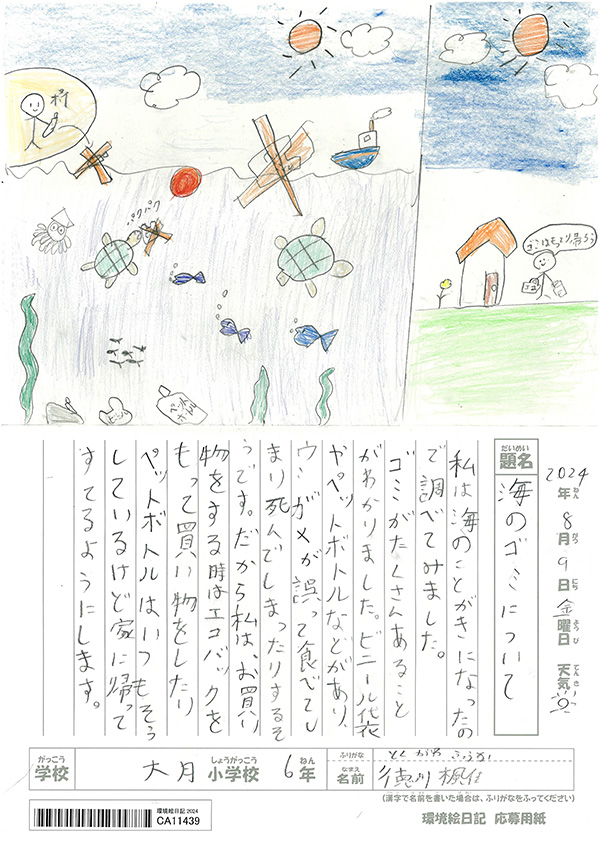 ポイ
パクパク
ゴミはもって帰ろう
ゴミ
2024年ねん8月がつ9日にち金曜日ようび 天気てんき
題名だいめい
海のゴミについて
私は海のことがきになったの
で調べてみました。
ゴミがたくさんあること
がわかりました。ビニール袋
やペットボトルなどがあり、
ウミガメが誤って食べてし
まり死んでしまったりするそ
うです。だから私は、お買い
物をする時はエコバックを
もって買い物をしたり
ペットボトルはいつもそう
しているけど家に帰って
すてるようにします。
学校がっこう 大月 小学校しょうがっこう 6年ねん
ふりがな とくがわ ふうか
名前なまえ 徳川
(漢字で名前を書いた場合は、ふりがなをふってください)
環境絵日記 2024
CA11439
環境絵日記 応募用紙